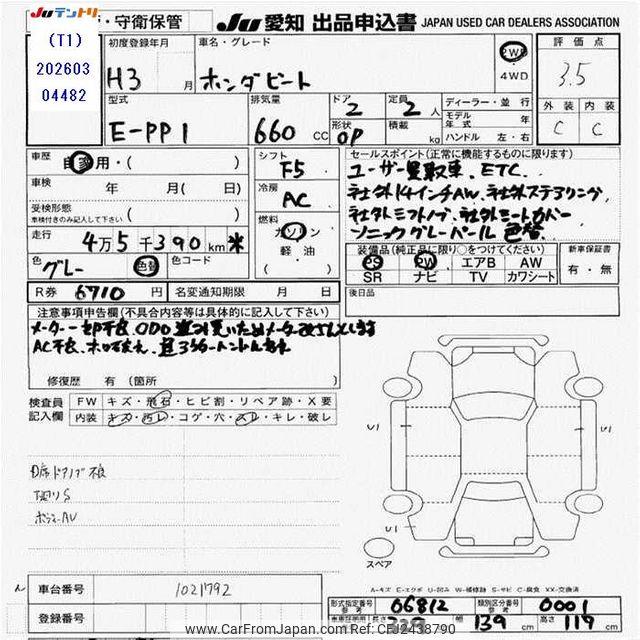 Juテントリ
・守衛保管
Ju 愛知 出品申込書 JAPAN USED CAR DEALERS ASSOCIATION
(T1)
202603
04482
初度登録年月
H3 月
車名・グレード
ホンダビート
2WD
4WD
評価点
3.5
外装 内装
C C
型式
E-PP1
排気量
660 cc
ドア
2
定員
2 人
形状
OP
積載
kg
ディーラー・並行
モデル年式 年
ハンドル 左・右
車歴
自家用・( )
車検
年 月( 日)
受検形態
車検付きのみ記入して下さい ( )
走行
4万5千390km *
色
グレー 色替
色コード
シフト
F5
冷房
AC
燃料
ガソリン
軽油
( )
セールスポイント(正常に機能するものに限ります)
ユーザー買取車、ETC、
社外14インチAW、社外ステアリング、
社外シフトノブ、社外シートカバー
ソニックグレーパール色替
装備品(純正品に限り○をつけてください)
PS PW エアB AW
SR ナビ TV カワシート
新車保証書
有・無
後日品
R券 6710 円
名変通知期限 月 日
注意事項申告欄(不具合内容等は具体的に記入して下さい)
メーター
AC不良、
修復歴 有(箇所 )
検査員
記入欄
FW キズ・飛石・ヒビ割・リペア跡・X要
内装 キズ・汚レ・コゲ・穴・スレ・キレ・破レ
D席ドアノブ不良
下廻りS
ボディーAU
U1
U1
U1
スペア
A-キズ E-エクボ U-凹み W-補修跡 S-サビ C-腐食 XX-交換済
車台番号 1021792
登録番号
形式指定番号 参考 06812
類別区分番号 参考 0001
長さ 329
幅 139 cm
高さ 119 cm
www.CarFromJapan.com Ref:CFJ2438790